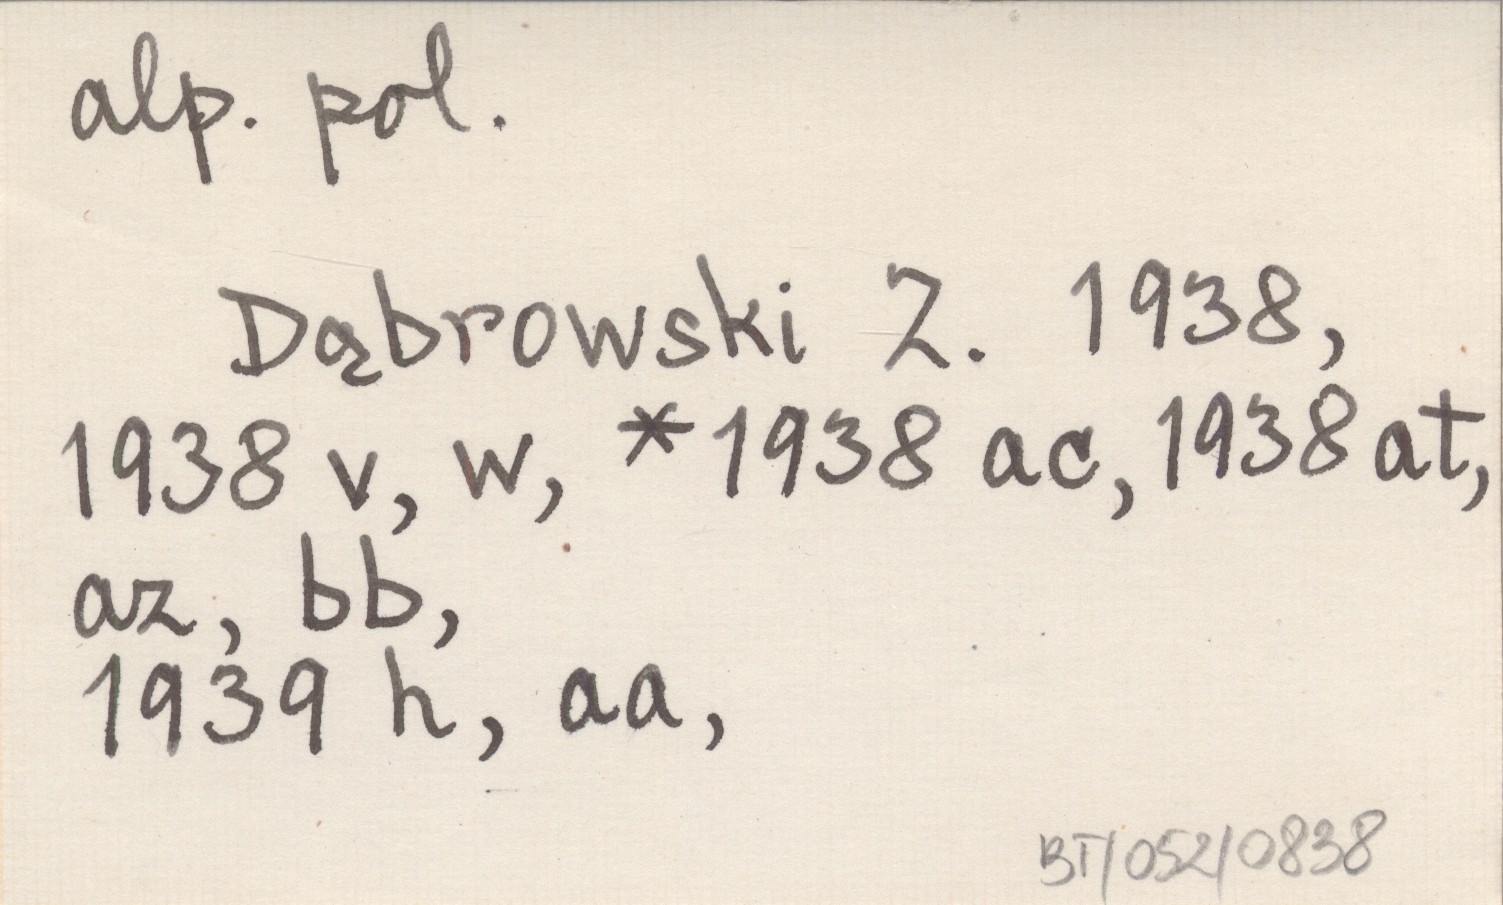 alp. pol.
Dąbrowski Z. 1938,
1938 v, w, *1938 ac, 1938 at,
az, bb,
1939 h, aa,
BT/052/0838